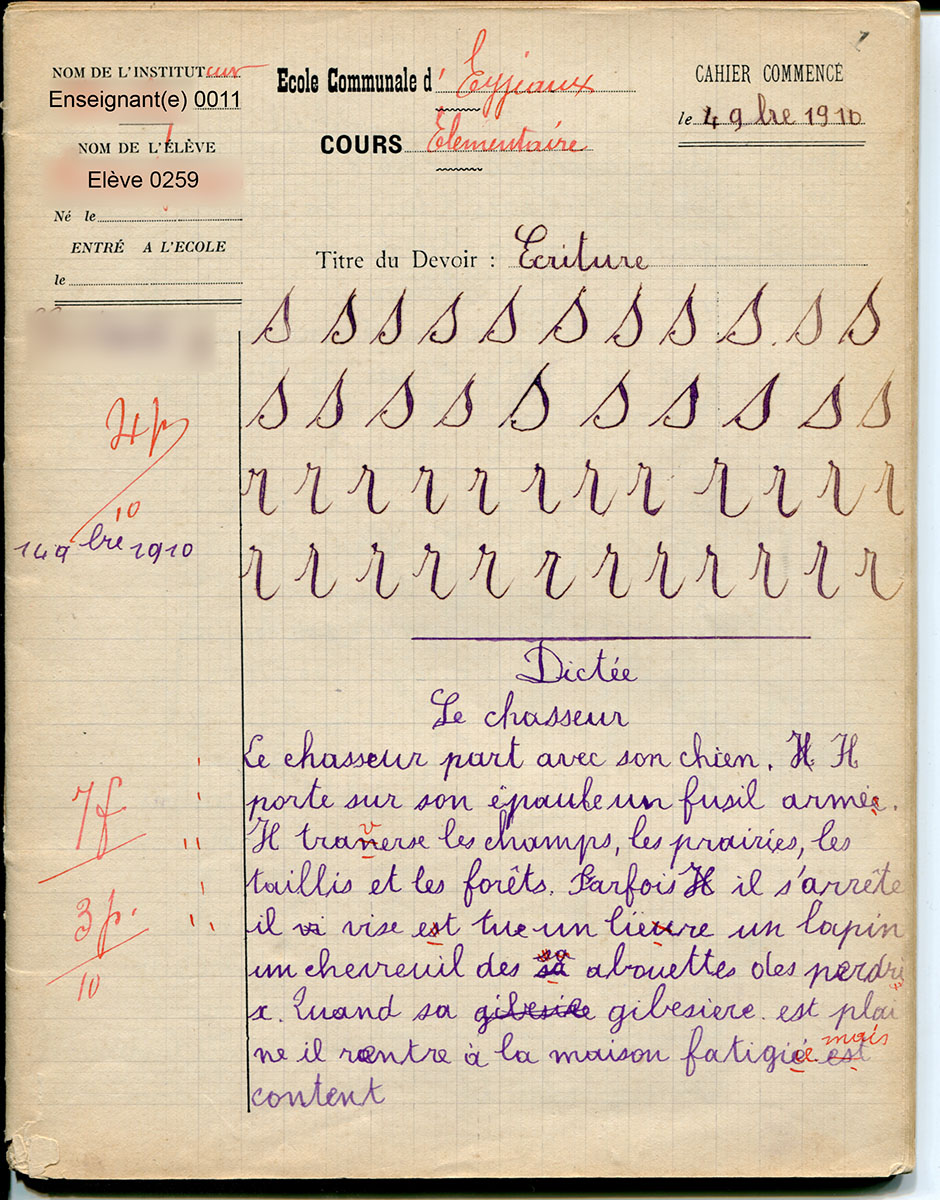 NOM DE L'INSTITUTeur
Enseignant(e) 0011
NOM DE L'ÉLÈVE
Elève 0259
Né le
ENTRÉ A L'ECOLE
le
Ecole Communale d' Eyjeaux
COURS Elémentaire
CAHIER COMMENCÉ
le 4 9 bre 1910
Titre du Devoir : Ecriture
S S S S S S S S S S S S
S S S S S S S S S S S
r r r r r r r r r r r r
r r r r r r r r r r r r
4p
10
14 9 bre 1910
Dictée
Le chasseur
Le chasseur part avec son chien. Il Il
porte sur son épaule un fusil armée.
Il tranverse les champs, les prairies, les
taillis et les forêts. Parfois Il il s'arrête
il vi vise est tue un lièvre un lapin
un chevreuil des sa alouettes des perdri
x. Quand sa gibesire gibesiere est plai
ne il rentre à la maison fatigié est mais
content
7f
3p.
10